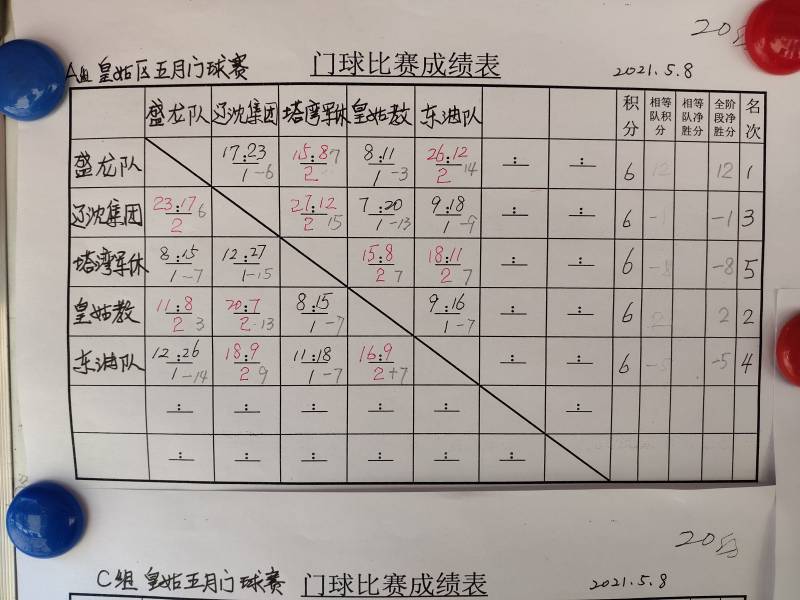 20
A组 皇姑区五月门球赛 门球比赛成绩表 2021.5.8
盛龙队 辽沈集团 塔湾军休 皇姑教 东油队 积分 相等队积分 相等队净胜分 全阶段净胜分 名次
盛龙队 17:23 1 -6 15:8 2 7 8:11 1 -3 26:12 2 14 : : 6 12 12 1
辽沈集团 23:17 2 6 27:12 2 15 7:20 1 -13 9:18 1 -9 : : 6 -1 -1 3
塔湾军休 8:15 1 -7 12:27 1 -15 15:8 2 7 18:11 2 7 : : 6 -8 -8 5
皇姑教 11:8 2 3 20:7 2 13 8:15 1 -7 9:16 1 -7 : : 6 2 2 2
东油队 12:26 1 -14 18:9 2 9 11:18 1 -7 16:9 2 +7 : : 6 -5 -5 4
: : : : : :
: : : : : :
20
C组 皇姑五月门球赛 门球比赛成绩表 2021.5.8